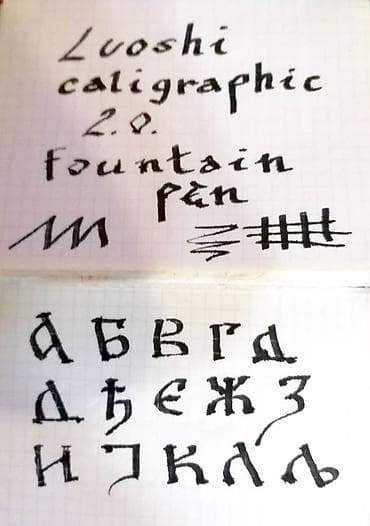 Luoshi
caligraphic
2.0.
fountain
pen
А Б В Г Д
Д Ђ Є Ж З
И Ј К Л Љ